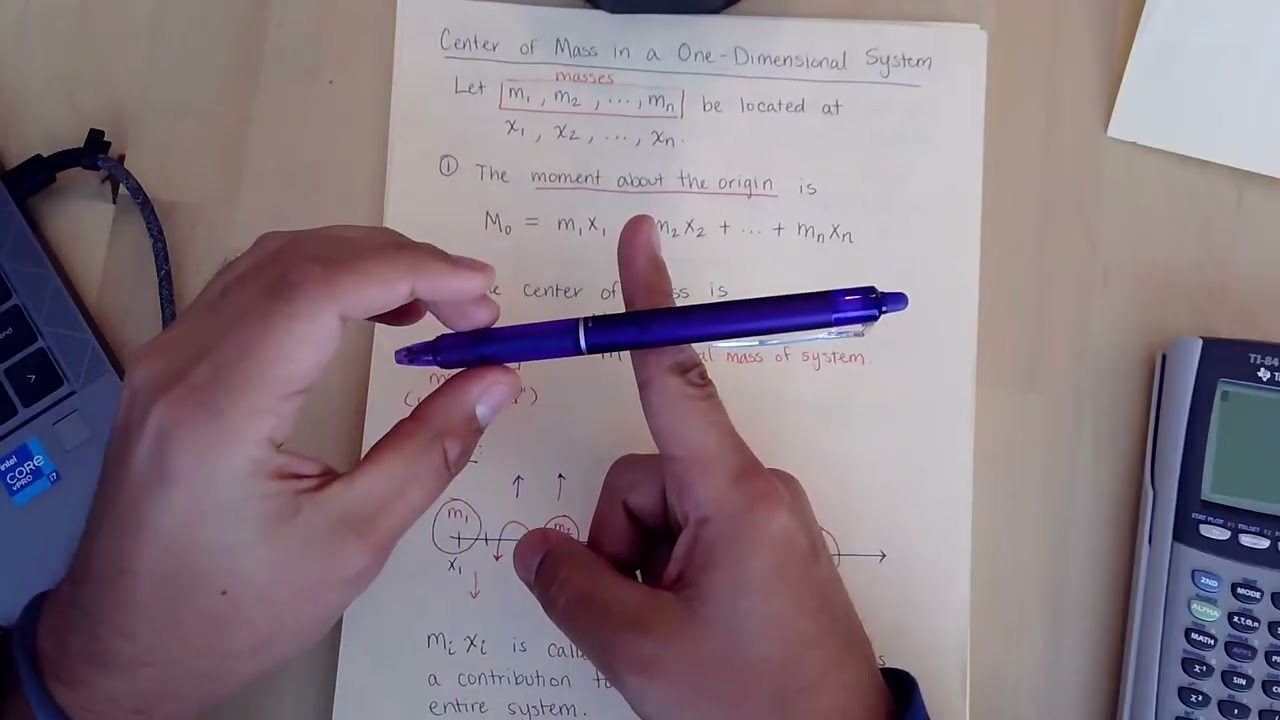 Center of Mass in a One-Dimensional System
masses
Let m₁, m₂, ..., mₙ be located at
x₁, x₂, ..., xₙ.
① The moment about the origin is
M₀ = m₁x₁ m₂x₂ + ... + mₙxₙ
center of is
mass of system.
m₁ m₂
x₁
mᵢxᵢ is
a contribution
entire system.
intel
CORE
vPRO i7
TI-84
STAT PLOT
TBLSET
2ND
MODE
ALPHA
X,T,θ,n
MATH
APPS
X⁻¹
SIN
X²